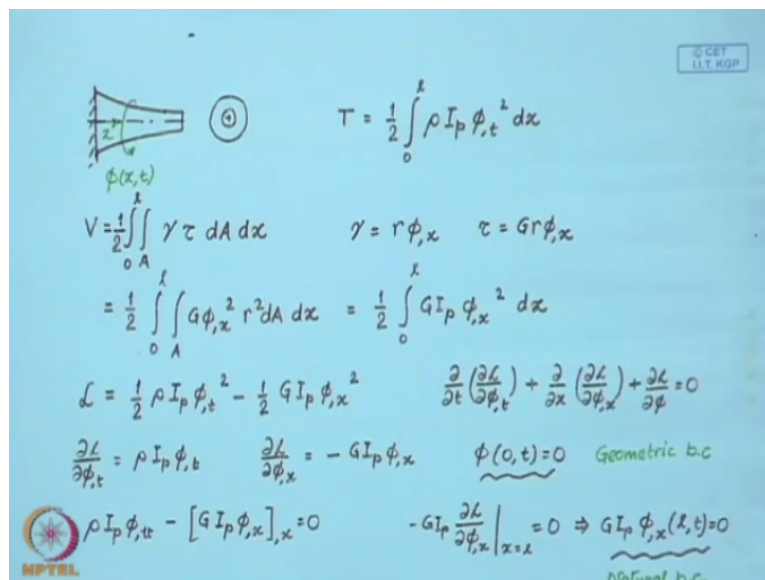 © CET
I.I.T. KGP
T = 1/2 ∫₀ˡ ρ I_p φ,t² dx
x
φ(x,t)
V = 1/2 ∫₀ˡ ∫_A γ τ dA dx γ = r φ,x τ = G r φ,x
= 1/2 ∫₀ˡ ∫_A G φ,x² r² dA dx = 1/2 ∫₀ˡ G I_p φ,x² dx
ℒ = 1/2 ρ I_p φ,t² - 1/2 G I_p φ,x² ∂/∂t (∂ℒ/∂φ,t) + ∂/∂x (∂ℒ/∂φ,x) + ∂ℒ/∂φ = 0
∂ℒ/∂φ,t = ρ I_p φ,t ∂ℒ/∂φ,x = - G I_p φ,x φ(0,t) = 0 Geometric b.c
ρ I_p φ,tt - [G I_p φ,x],x = 0 - G I_p ∂ℒ/∂φ,x |x=l = 0 ⇒ G I_p φ,x (l,t) = 0
Natural b.c
NPTEL